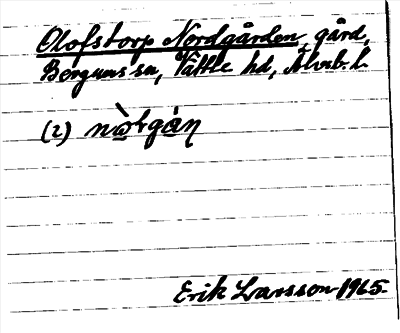 Olofstorp Nordgården, gård,
Bergums sn, Vättle hd, Älvsb. l.
(2) nò̱tgà̱ŋ
Erik Larsson 1965.